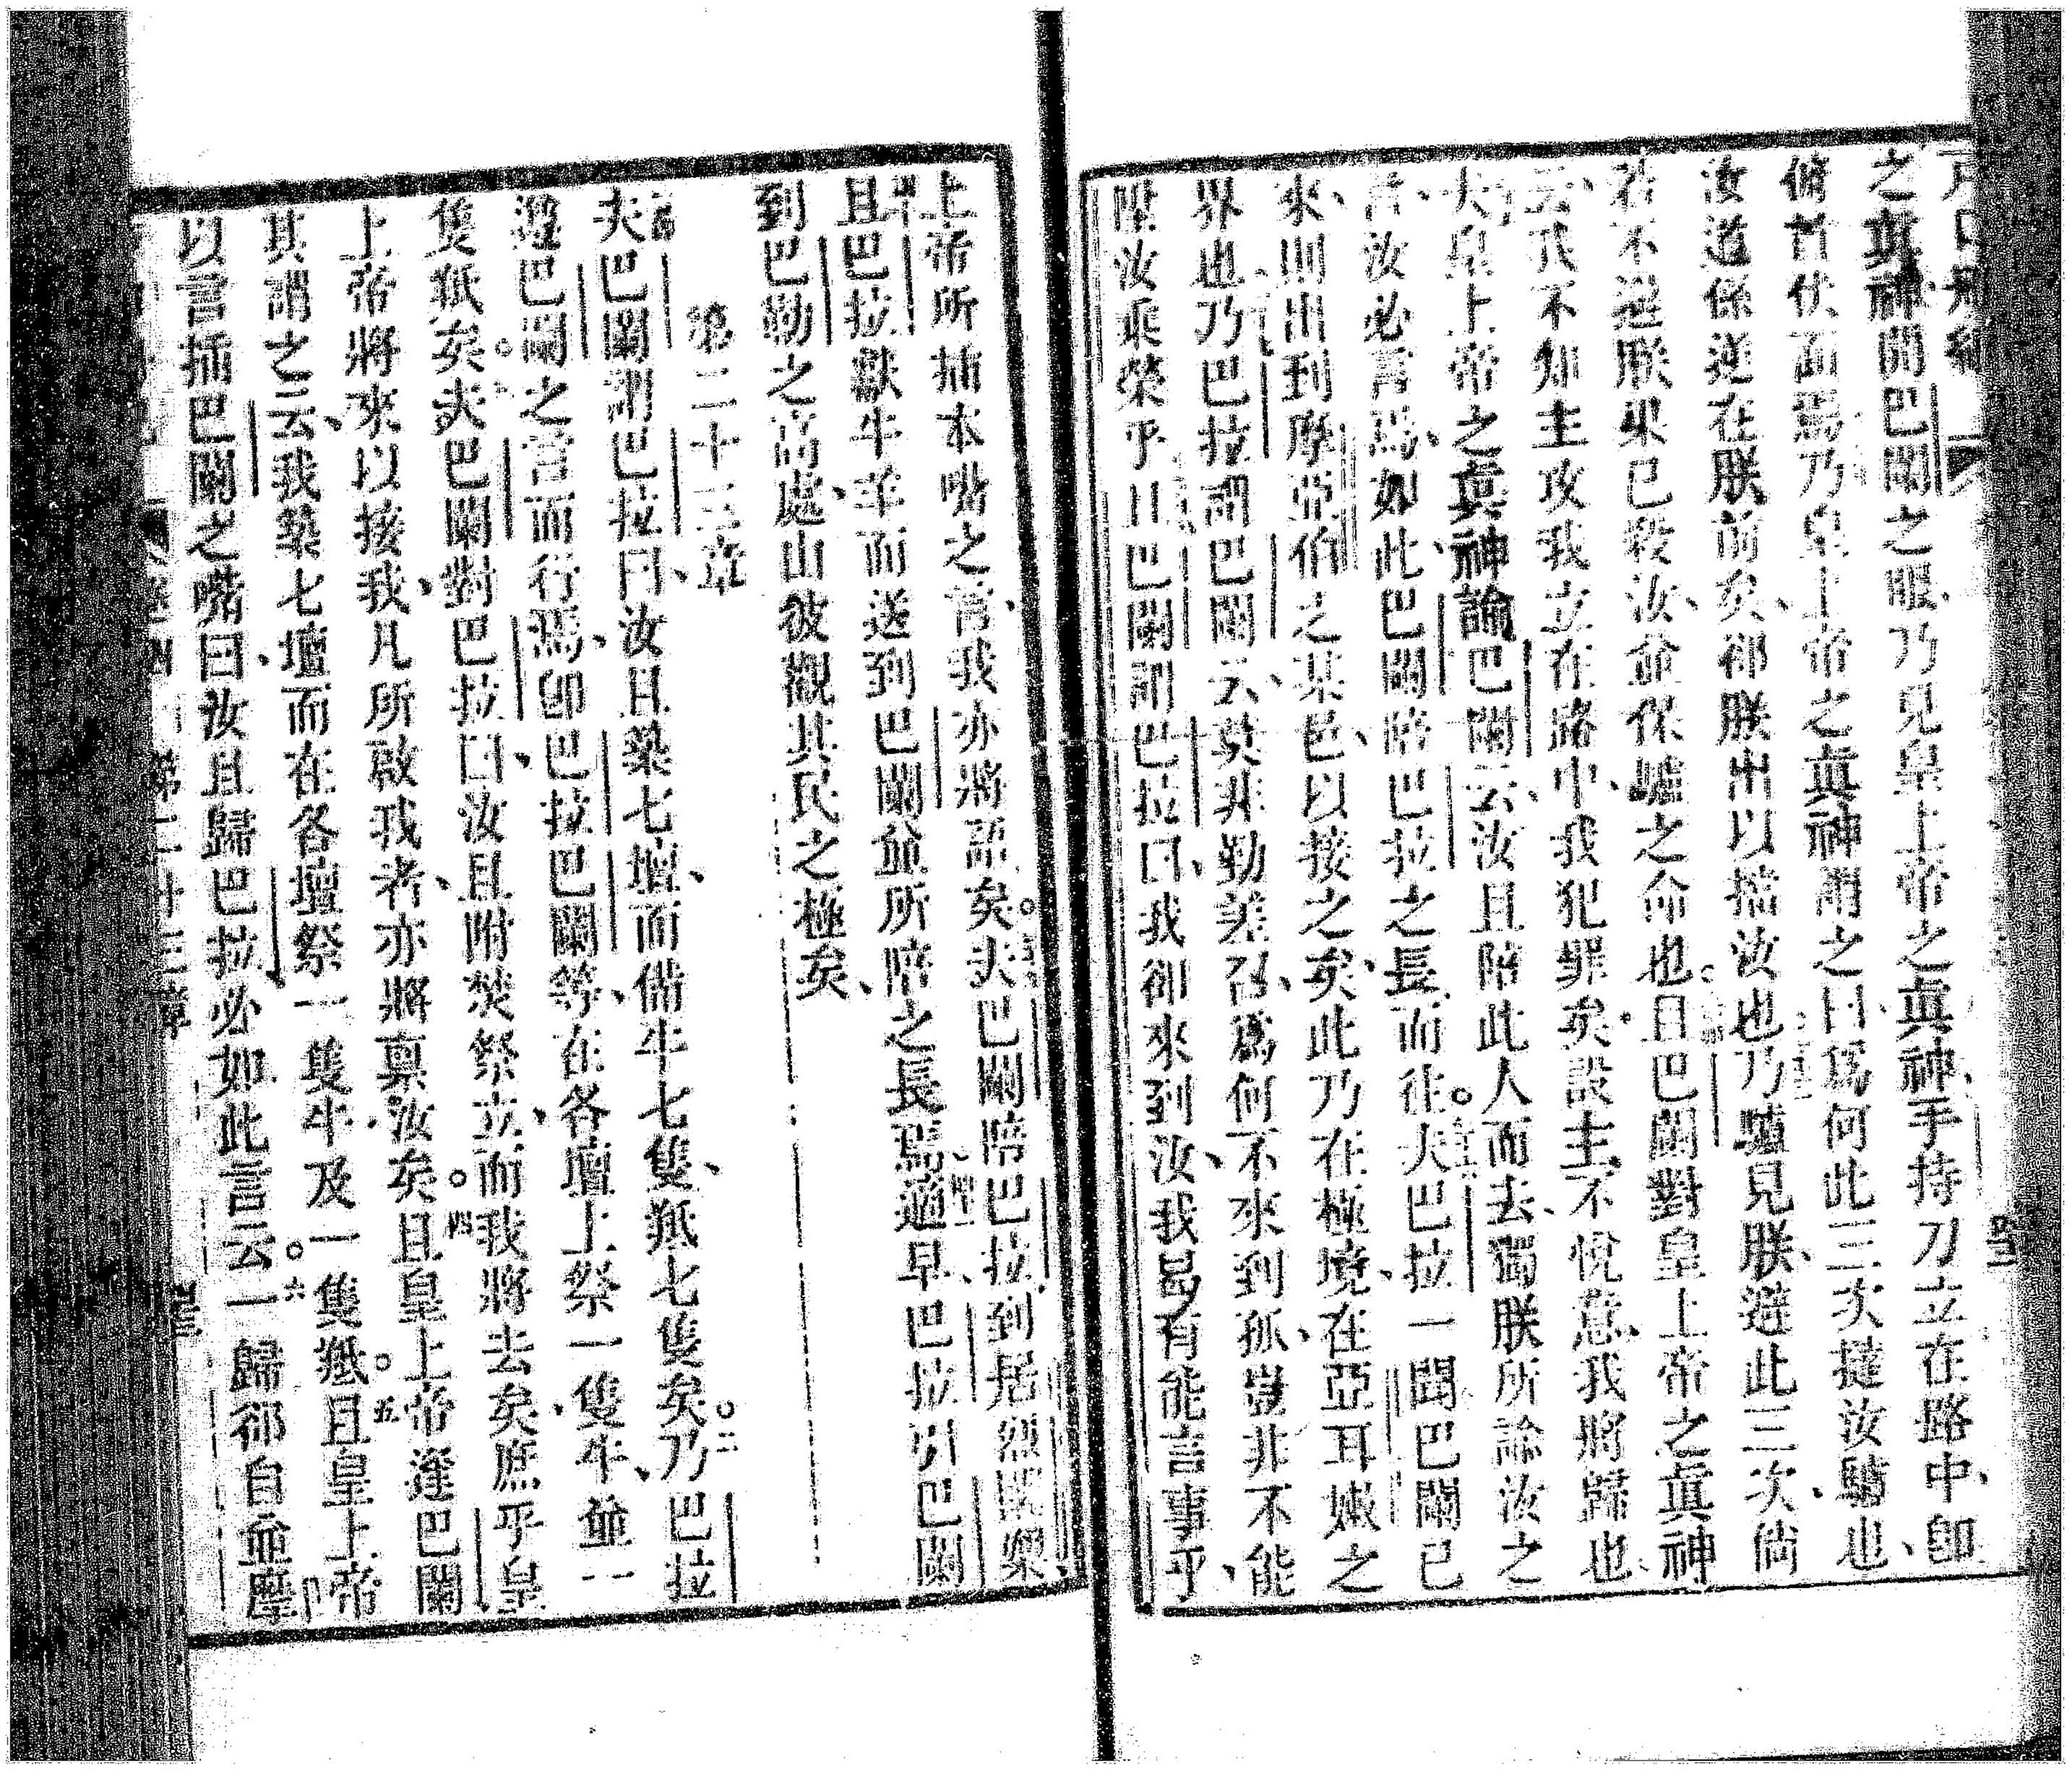 之真神開巴闌之眼乃見皇上帝之真神手持刀立在路中即
俯首伏面焉乃皇上帝之真神謂之曰為何此三次撻汝驢也
汝道係逆在朕前矣卻朕出以攔汝也乃驢見朕避此三次倘
若不避朕果已殺汝並保驢之命也且巴闌對皇上帝之真神
云我不知主攻我立在路中我犯罪矣設主不悅意我將歸也
夫皇上帝之真神諭巴闌云汝且陪此人而去獨朕所諭汝之
言汝必言焉如此巴闌陪巴拉之長而往夫巴拉一聞巴闌已
來則出到摩亞伯之某邑以接之矣此乃在極境在亞耳嫩之
界也乃巴拉謂巴闌云莫非勤差召為何不來到孤豈非不能
陞汝乘榮乎且巴闌謂巴拉曰我卻來到汝我曷有能言事乎
上帝所插本嘴之言我亦將語矣夫巴闌陪巴拉到居烈
且巴拉獻牛羊而送到巴闌並所陪之長焉適早巴拉引巴闌
到巴勒之高處山彼觀其民之極矣
第二十三章
夫巴闌謂巴拉曰汝且築七壇而備牛七隻羝七隻矣二乃巴拉
遵巴闌之言而行焉即巴拉巴闌等在各壇上祭一隻牛並一
隻羝矣夫巴闌對巴拉曰汝且附焚祭立而我將去矣庶乎皇
上帝將來以接我凡所啟我者亦將稟汝矣四且皇上帝逢巴闌
其謂之云我築七壇而在各壇祭一隻牛及一隻羝五且皇上帝
以言插巴闌之嘴曰汝且歸巴拉必如此言云六一歸卻自並摩
第二十三章